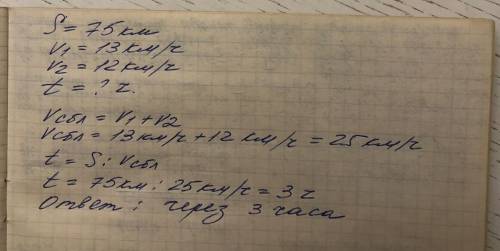 S = 75 км
V1 = 13 км/ч
V2 = 12 км/ч
t = ? ч.
Vсбл = V1 + V2
Vсбл = 13 км/ч + 12 км/ч = 25 км/ч
t = S : Vсбл
t = 75 км : 25 км/ч = 3 ч
Ответ : через 3 часа